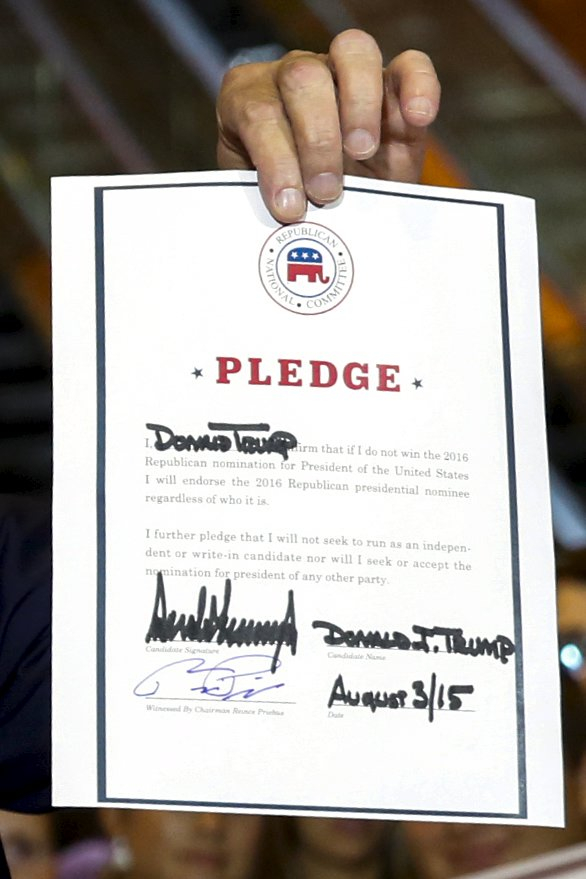 REPUBLICAN
NATIONAL COMMITTEE
PLEDGE
I, DONALD TRUMP firm that if I do not win the 2016
Republican nomination for President of the United States
I will endorse the 2016 Republican presidential nominee
regardless of who it is.
I further pledge that I will not seek to run as an indepen-
dent or write-in candidate nor will I seek or accept the
nomination for president of any other party.
DONALD J. TRUMP
Candidate Signature
Candidate Name
AUGUST 3/15
Witnessed By Chairman Reince Priebus
Date